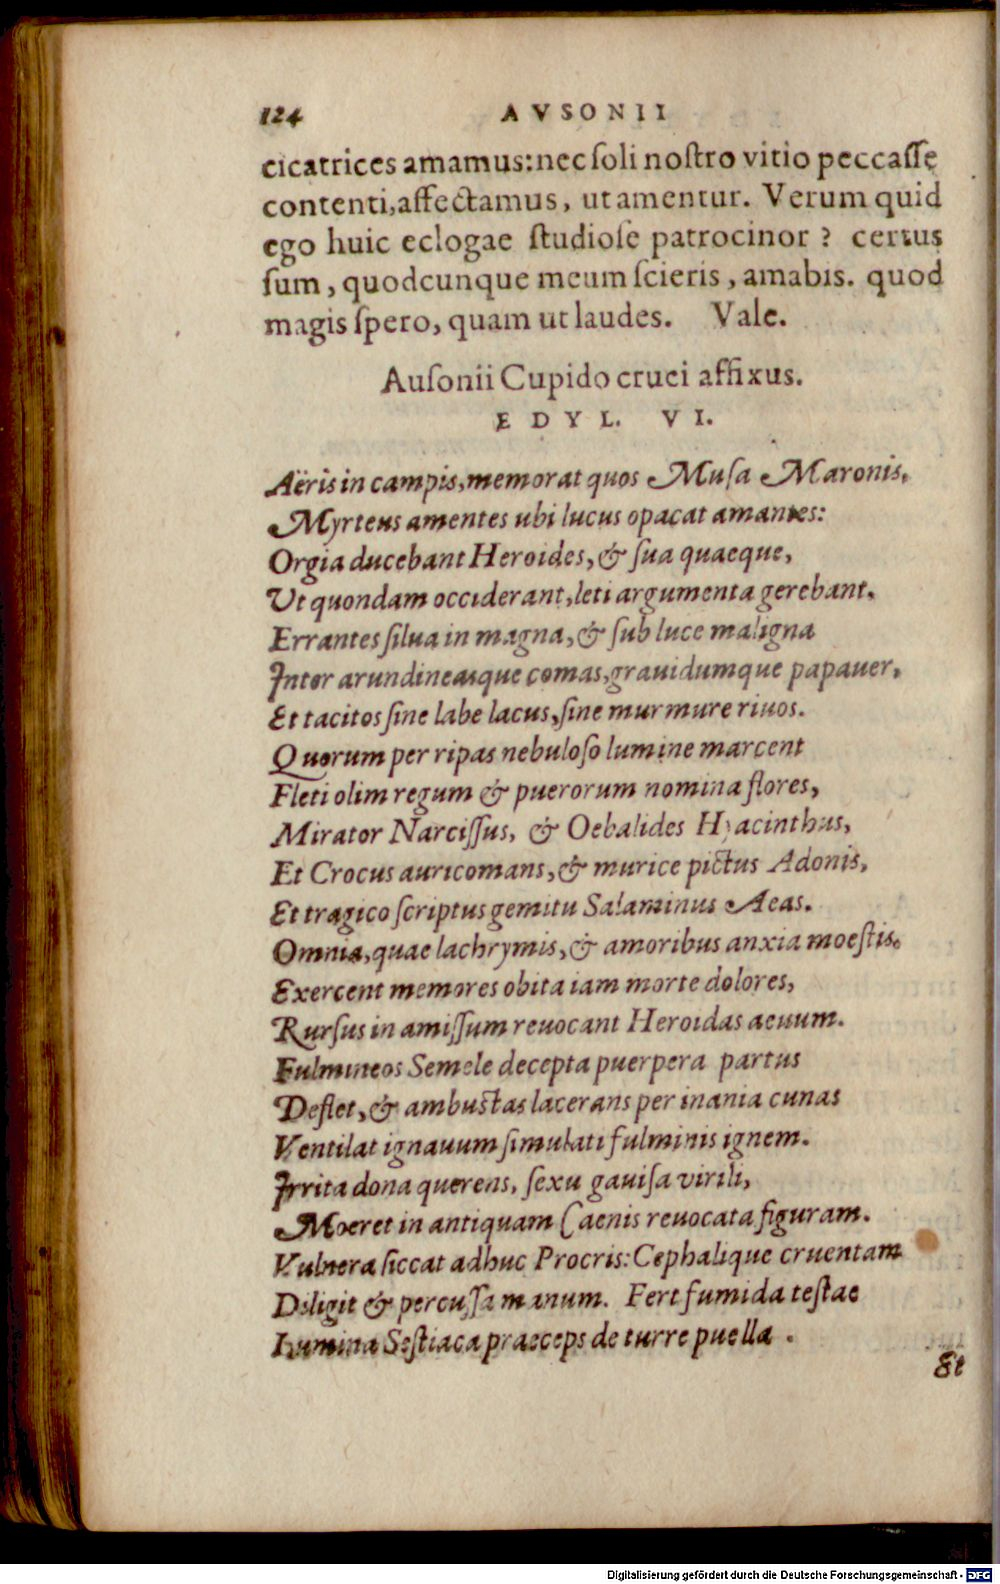 124 AVSONII
cicatrices amamus: nec ſoli noſtro vitio peccaſſe
contenti, affectamus, ut amentur. Verum quid
ego huic eclogae ſtudioſe patrocinor? certus
ſum, quodcunque meum ſcieris, amabis. quod
magis ſpero, quam ut laudes. Vale.
Auſonii Cupido cruci affixus.
EDYL. VI.
Aëris in campis, memorat quos Muſa Maronis,
Myrteus amentes ubi lucus opacat amantes:
Orgia ducebant Heroides, & ſua quaeque,
Ut quondam occiderant, leti argumenta gerebant,
Errantes ſilua in magna, & ſub luce maligna
Inter arundineasque comas, grauidumque papauer,
Et tacitos ſine labe lacus, ſine murmure riuos.
Quorum per ripas nebuloſo lumine marcent
Fleti olim regum & puerorum nomina flores,
Mirator Narciſſus, & Oebalides Hyacinthus,
Et Crocus auricomans, & murice pictus Adonis,
Et tragico ſcriptus gemitu Salaminus Aeas.
Omnia, quae lachrymis, & amoribus anxia moeſtis.
Exercent memores obita iam morte dolores,
Rurſus in amiſſum reuocant Heroidas aeuum.
Fulmineos Semele decepta puerpera partus
Deflet, & ambuſtas lacerans per inania cunas
Ventilat ignauum ſimulati fulminis ignem.
Irrita dona querens, ſexu gauiſa virili,
Moeret in antiquam Caenis reuocata figuram.
Vulnera ſiccat adhuc Procris: Cephalique cruentam
Diligit & percuſſa manum. Fert fumida teſtae
Lumina Seſtiaca praeceps de turre puella.
Et
Digitalisierung gefördert durch die Deutsche Forschungsgemeinschaft - DFG